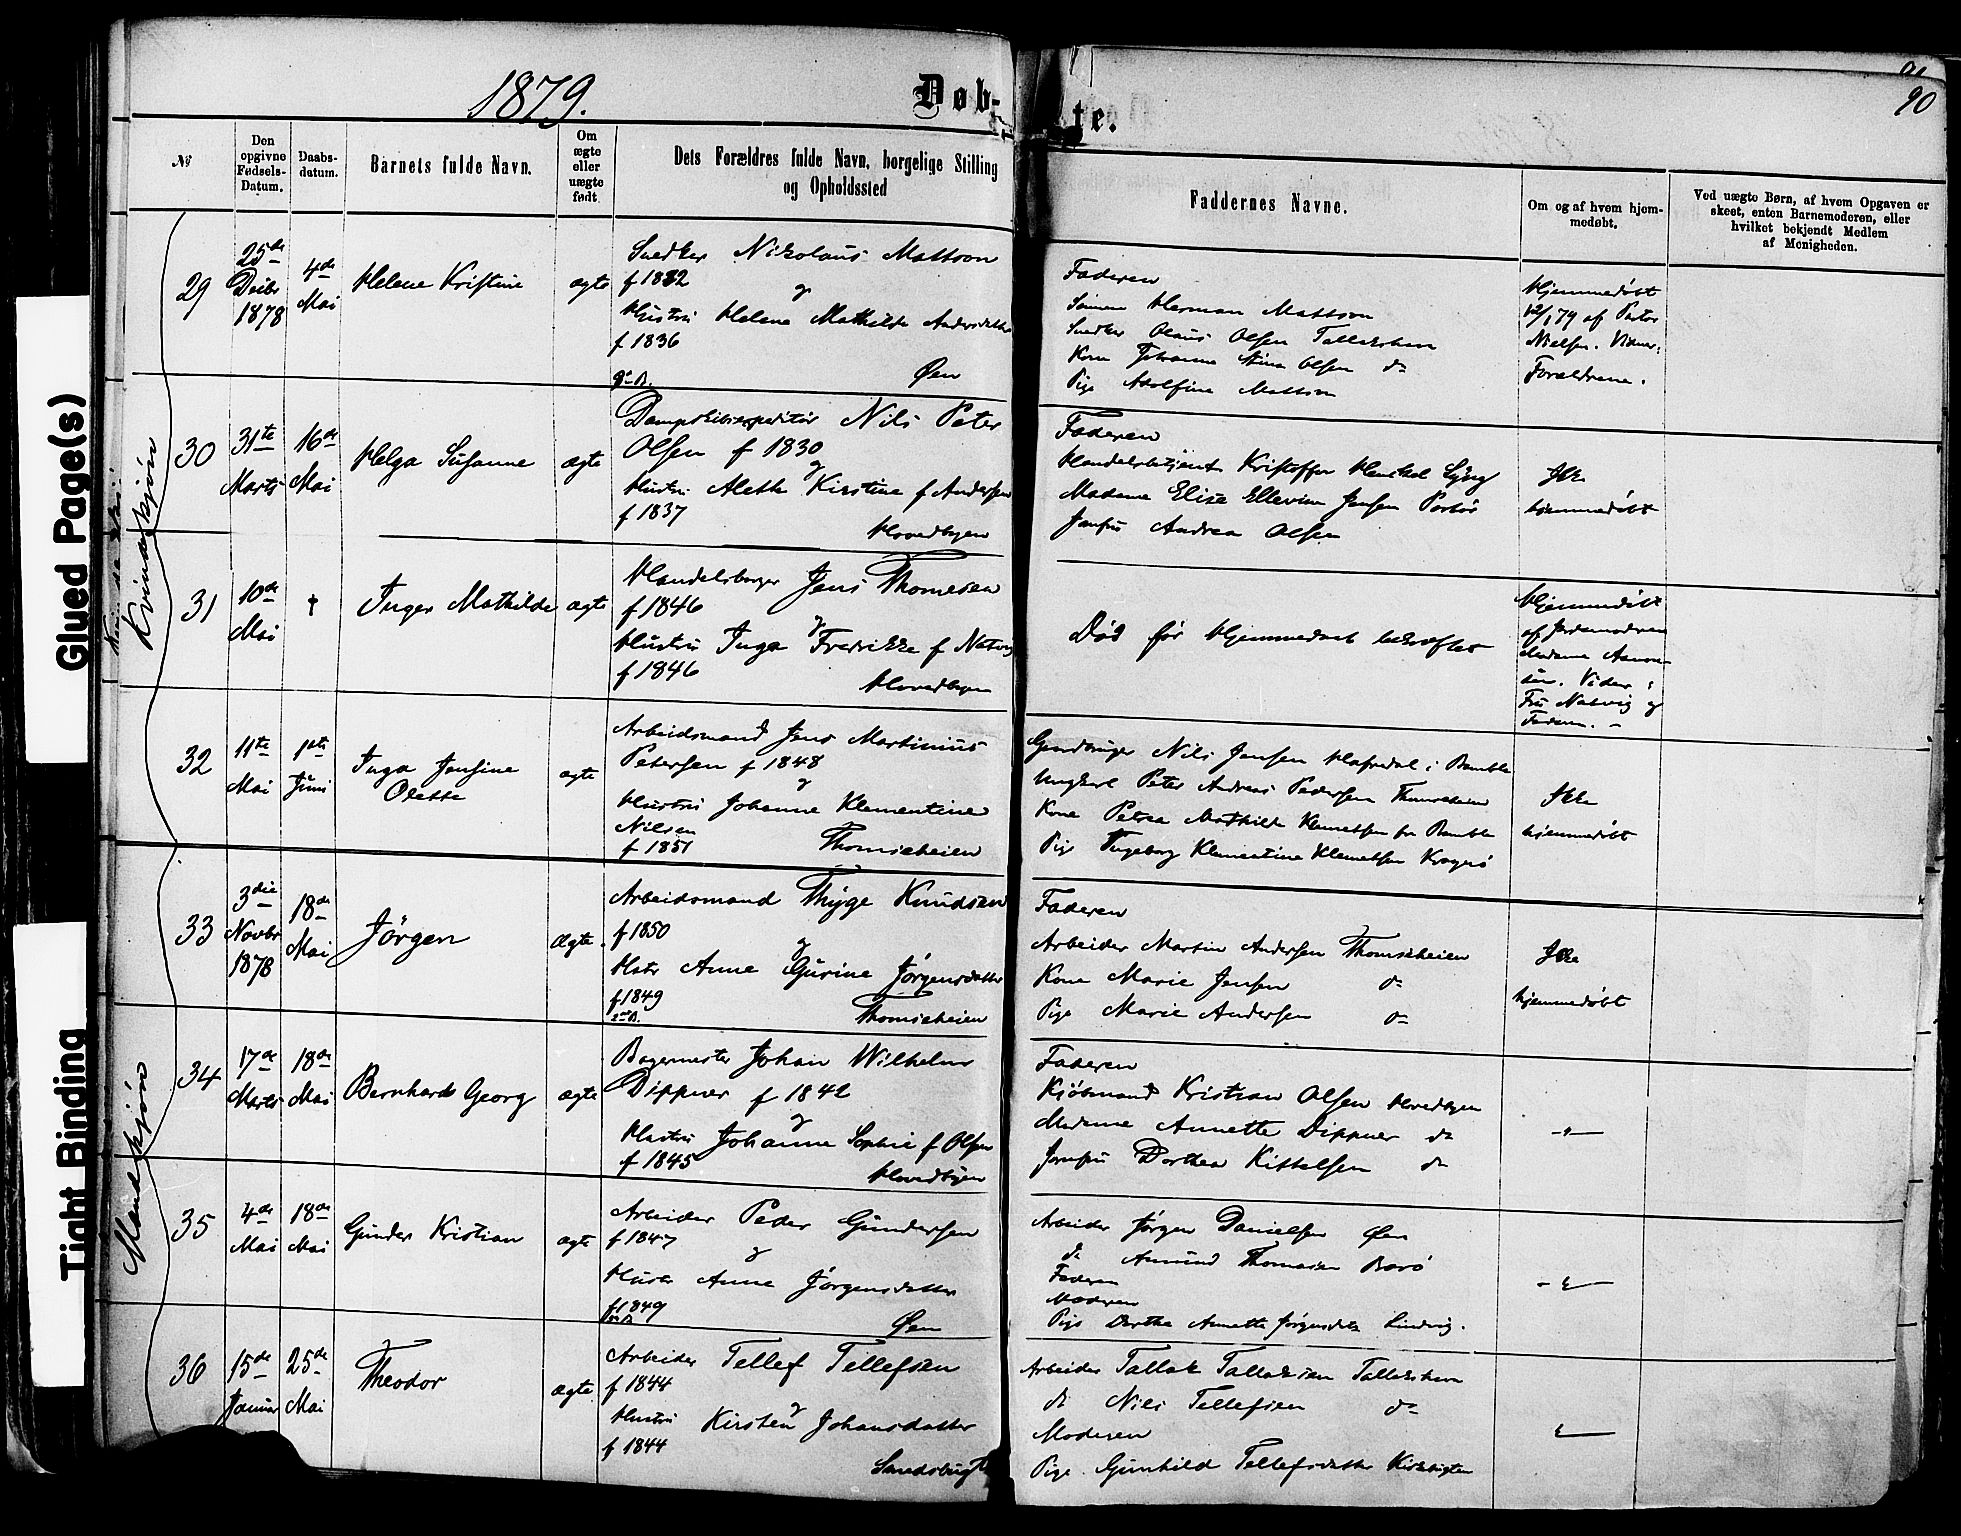 1879.
Døb-
te.
90
Nº
Den opgivne Fødsels-Datum.
Daabs-datum.
Barnets fulde Navn.
Om ægte eller uægte født.
Dets Forældres fulde Navn, borgelige Stilling
og Opholdssted
Faddernes Navne.
Om og af hvem hjem-
medøbt.
Ved uægte Børn, af hvem Opgaven er
skeet, enten Barnemoderen, eller
hvilket bekjendt Medlem
af Menigheden.
Glued Page(s)
Tight Binding
Kvindekjøn
Mandkjøn
29
25de Decbr 1878
4de Mai
Helene Kristine
ægte
Snedker Nikolaus Mattson
f 1832
&
Hustru Helene Mathilde Andersdatter
f 1836
Øen
Faderen
Herman Mattson
Snedker Olaus Olsen Tallakshavn
Kone Johanne Stina Olsen do
Pige Adolfine Mattson
Hjemmedøbt
12/1 79 af Pastor
Nielsen. Vidner:
Forældrene.
30
31te Marts
16de Mai
Helga Susanne
ægte
Dampskibsexpeditør Nils Peter
Olsen f 1830
&
Hustru Alette Kirstine f Andersen
f 1837
Hovedbyen
Faderen
Handelsbetjent Kristoffer Lyng
Madame Elise Ellevine Jensen Portør
Jomfru Andrea Olsen
Ikke
hjemmedøbt
31
10de Mai
†
Inger Mathilde
ægte
Handelsborger Jens Thomesen
f 1846
&
Hustru Inga Fredrikke f Natvig
f 1846
Hovedbyen
Død før Hjemmedaab bekræftes
Hjemmedøbt
af Jordemoderen
Madame
Vidner:
Fru Natvig og
Faderen. -
32
11te Mai
1ste Juni
Inga Jensine
Odette
ægte
Arbeidsmand Jens Martinius
Petersen f 1848
&
Hustru Johanne Klementine
Nilsen
f 1851
Thomesheien
Gaardbruger Nils Jensen Hafredal i Bamble
Ungkarl Peter Andreas Pedersen Thomesheien
Kone Petrea Mathilde Klemetsen fra Bamble
Pige Ingeborg Klementine Klemetsen Kragerø
Ikke
hjemmedøbt
33
3die Novbr 1878
18de Mai
Jörgen
Ægte.
Arbeidsmand Thyge Knudsen
f 1850
&
Hstr Anne Gurine Jørgensdatter
f 1849
Thomesheien
Faderen
Arbeider Martin Andersen Thomesheien
Kone Marie Jensen do
Pige Marie Andersen do
Ikke
hjemmedøbt
34
17de Marts
18de Mai
Bernhard Georg
ægte
Bagermester Johan Wilhelm
Dippner f 1842
&
Hustru Johanne Sophie f Olsen
f 1845
Hovedbyen
Faderen
Kjøbmand Kristian Olsen Hovedbyen
Madame Annette Dippner do
Jomfru Dorthea Kittelsen do
—"—
35
4de Mai
18de Mai
Gunder Kristian
ægte
Arbeider Peder Gundersen
f 1847
&
Hustr Anne Jörgensdatter
f 1849
Øen
Arbeider Jørgen Danielsen Øen
do Amund Thomasen Barø
Faderen
Moderen
Pige Dorthe Annette Jørgensdtr Lindvig.
—"—
36
15de Januar
25de Mai
Theodor
ægte
Arbeider Tellef Tellefsen
f 1844
&
Hustru Kirsten Johansdatter
f 1844
Sandsbugten
Arbeider Tallak Tallaksen Tallakshavn
do Nils Tellefsen do
Moderen
Pige Gunhild Tellefsdatter Kirkbugten
"—